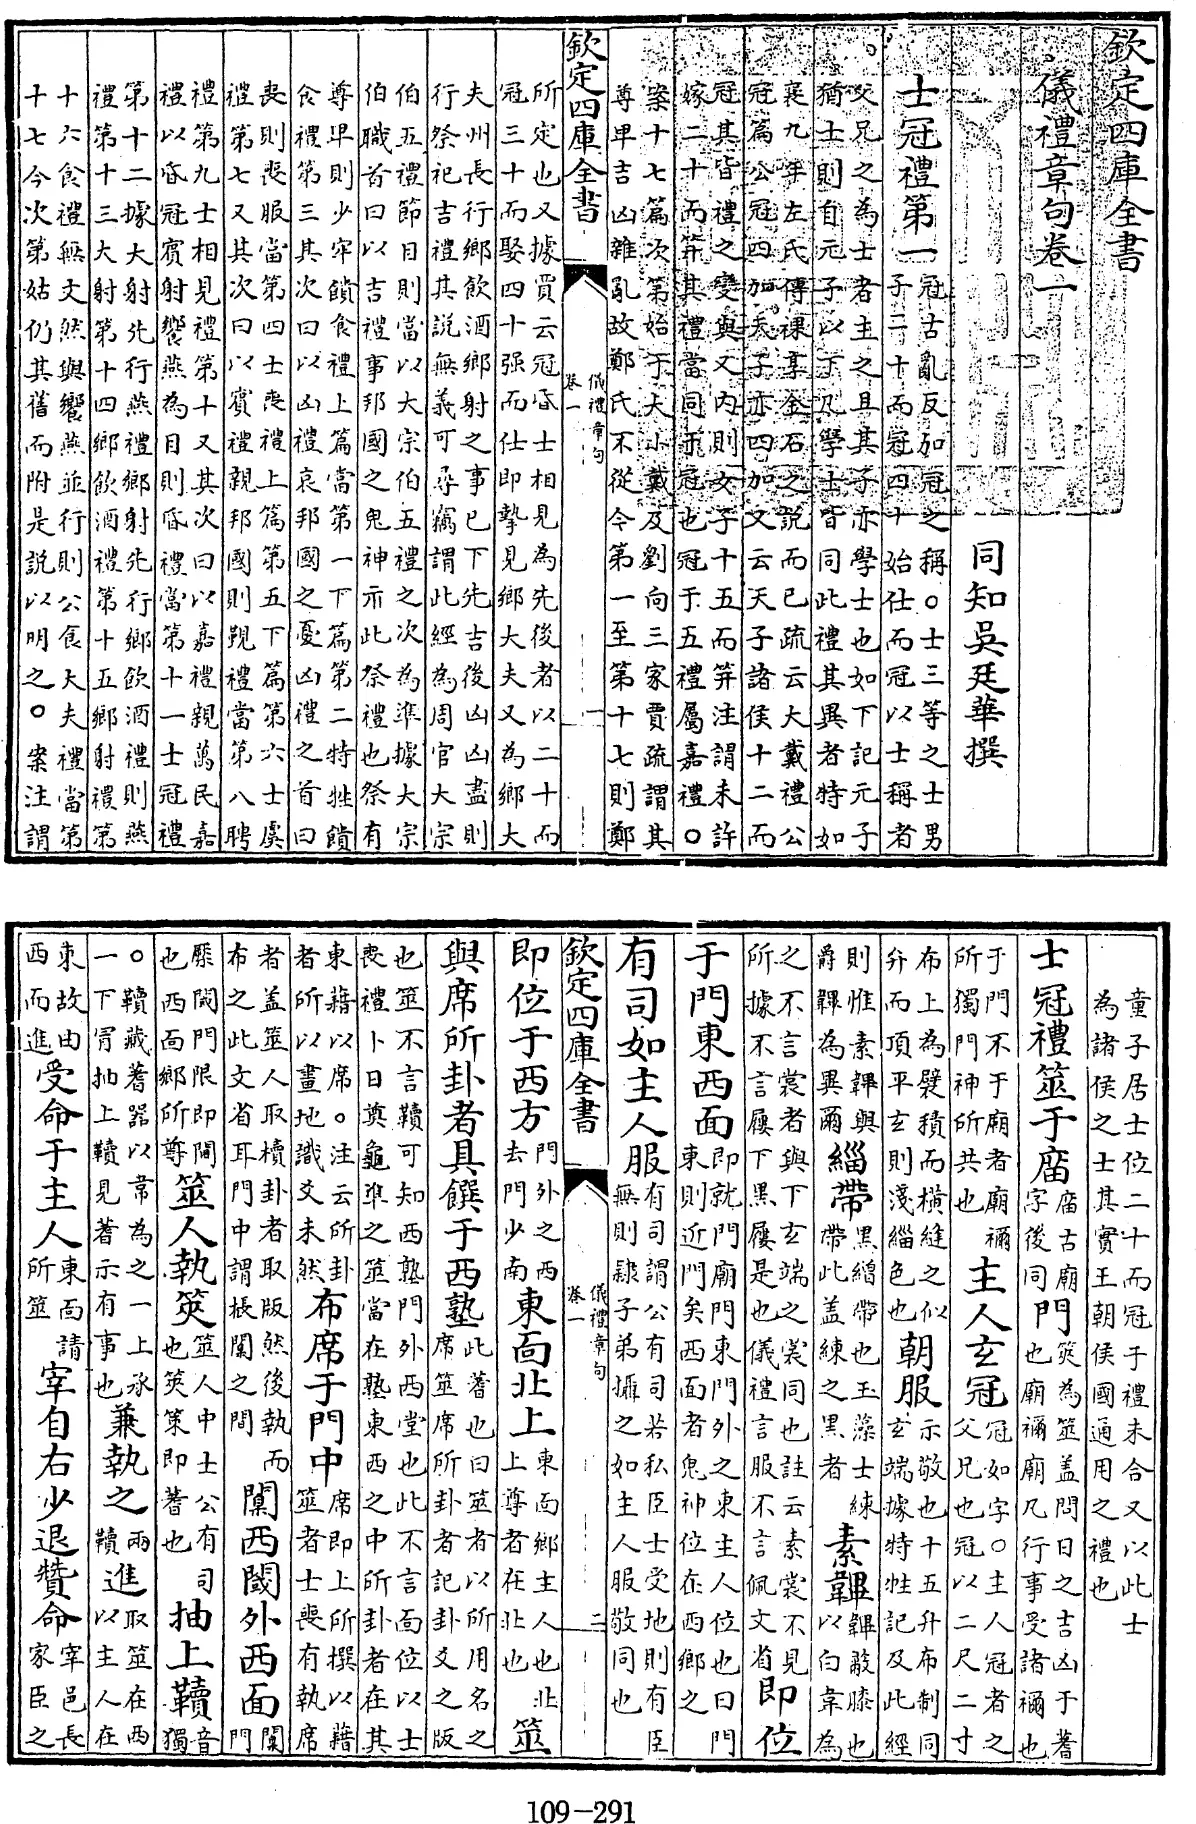 欽定四庫全書
儀禮章句卷一
同知吳廷華撰
士冠禮第一冠古亂反加冠之稱○士三等之士男子二十而冠四十始仕而冠以士稱者
父兄之為士者主之且其子亦學士也如下記元子
猶士則自元子以下凡學士皆同此禮其異者特如
襄九年左氏傳祼享金石之說而已疏云大戴禮公
冠篇公冠四加天子亦四加又云天子諸侯十二而
冠其皆禮之變與又内則女子十五而笄注謂未許
嫁二十而笄其禮當同于冠也冠于五禮屬嘉禮○
案十七篇次第始于大小戴及劉向三家賈疏謂其
尊卑吉凶雜亂故鄭氏不從今第一至第十七則鄭
欽定四庫全書
儀禮章句
卷一
一
所定也又據賈云冠昏士相見為先後者以二十而
冠三十而娶四十强而仕即摯見鄉大夫又為鄉大
夫州長行鄉飲酒鄉射之事已下先吉後凶凶盡則
行祭祀吉禮其說無義可尋竊謂此經為周官大宗
伯五禮節目則當以大宗伯五禮之次為準據大宗
伯職首曰以吉禮事邦國之鬼神示此祭禮也祭有
尊卑則少牢饋食禮上篇當第一下篇第二特牲饋
食禮第三其次曰以凶禮哀邦國之憂凶禮之首曰
喪則喪服當第四士喪禮上篇第五下篇第六士虞
禮第七又其次曰以賓禮親邦國則覲禮當第八聘
禮第九士相見禮第十又其次曰以嘉禮親萬民嘉
禮以昏冠賓射饗燕為目則昏禮當第十一士冠禮
第十二據大射先行燕禮鄉射先行鄉飲酒禮則燕
禮第十三大射第十四鄉飲酒禮第十五鄉射禮第
十六食禮無文然與饗燕並行則公食大夫禮當第
十七今次第姑仍其舊而附是説以明之○案注謂
童子居士位二十而冠于禮未合又以此士
為諸侯之士其實王朝侯國通用之禮也
士冠禮筮于庿庿古廟字後同門筴為筮蓋問日之吉凶于蓍也廟禰廟凡行事受諸禰也
于門不于廟者廟禰所獨門神所共也主人玄冠冠如字○主人冠者之父兄也冠以二尺二寸
布上為襞積而橫縫之似弁而項平玄則淺緇色也朝服示敬也十五升布制同玄端據特牲記及此經
則惟素韠與爵韠為異爾緇帶黑繒帶也玉藻士練帶此蓋練之黑者素韠韠蔽膝也以白韋為
之不言裳者與下玄端之裳同也註云素裳不見所據不言屨下黑屨是也儀禮言服不言佩文省即位
于門東西面即就門廟門東門外之東主人位也曰門東則近門矣西面者鬼神位在西鄉之
有司如主人服有司謂公有司若私臣士受地則有臣無則隸子弟攝之如主人服敬同也
欽定四庫全書
儀禮章句
卷一
二
即位于西方門外之西去門少南東面北上東面鄉主人也北上尊者在北也筮
與席所卦者具饌于西塾此蓍也曰筮者以所用名之席筮席所卦者記卦爻之版
也筮不言韇可知西塾門外西堂也此不言面位以士喪禮卜日奠龜準之筮當在塾東西之中所卦者在其
東藉以席○注云所卦者所以畫地識爻未然布席于門中席即上所撰以藉筮者士喪有執席
者蓋筮人取櫝卦者取版然後執而布之此文省耳門中謂棖闑之間闑西閾外西面闑門
橜閾門限即閫也西面鄉所尊筮人執筴筮人中士公有司也筴策即蓍也抽上韇音獨
○韇藏蓍器以韋為之一上承一下冐抽上韇見蓍示有事也兼執之兩韇進取筮在西以主人在
東故由西而進受命于主人東面請所筮宰自右少退贊命宰邑長家臣之
109-291